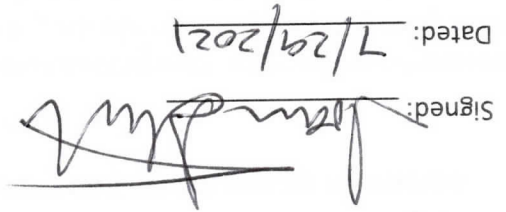 Signed:
Dated: 7/29/2021